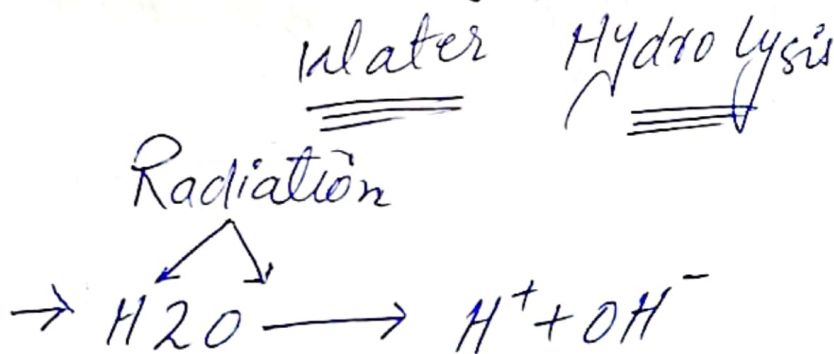 Water Hydrolysis
Radiation
→ H2O ⟶ H⁺ + OH⁻